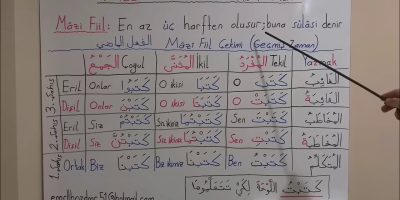 Mâzi Fiil: En az üç harften oluşur; buna sülâsi denir
الفعل الماضي Mâzi Fiil Çekimi (Geçmiş Zaman)
الجَمْعُ Çoğul المُثَنَّى İkil المُفْرَدُ Tekil Yazmak
3. Şahıs Eril Onlar كَتَبُوا O ikisi كَتَبَا O كَتَبَ الْغَائِبُ
Dişil Onlar كَتَبْنَ O ikisi كَتَبَتَا O كَتَبَتْ الْغَائِبَةُ
2. Şahıs Eril Siz كَتَبْتُمْ Siz ikiniz كَتَبْتُمَا Sen كَتَبْتَ الْمُخَاطَبُ
Dişil Siz كَتَبْتُنَّ Siz ikiniz كَتَبْتُمَا Sen كَتَبْتِ الْمُخَاطَبَةُ
1. Şahıs Ortak Biz كَتَبْنَا Biz ikimiz كَتَبْنَا Ben كَتَبْتُ الْمُتَكَلِّمُ
كَتَبْتُ اللَّوْحَةَ لِكَيْ تَتَعَلَّمُوا